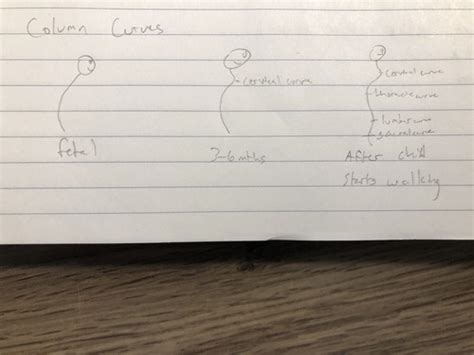 Column Curves
cervical curve
cervical curve
thoracic curve
lumbar curve
sacral curve
fetal
3-6 mths
After child
starts walking